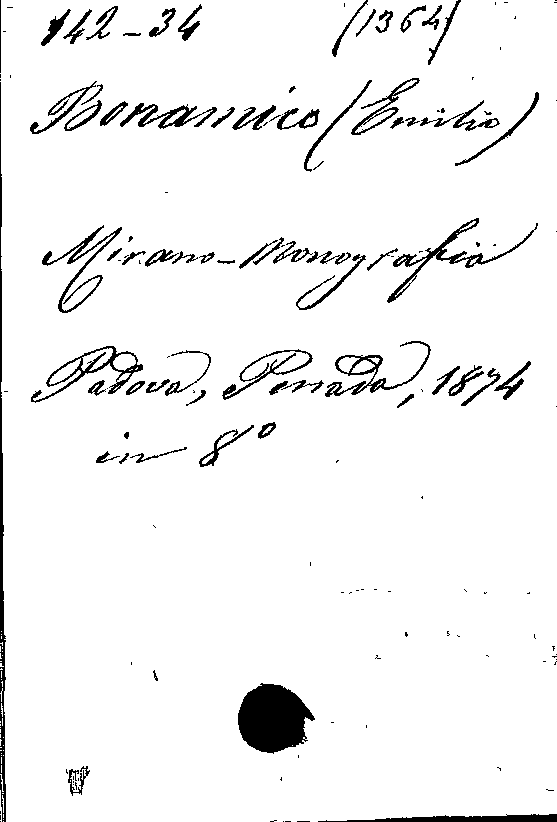 142-34 (1364)
Bonamico (Emilio)
Mirano - Monografia
Padova, Penada, 1874
in 8°